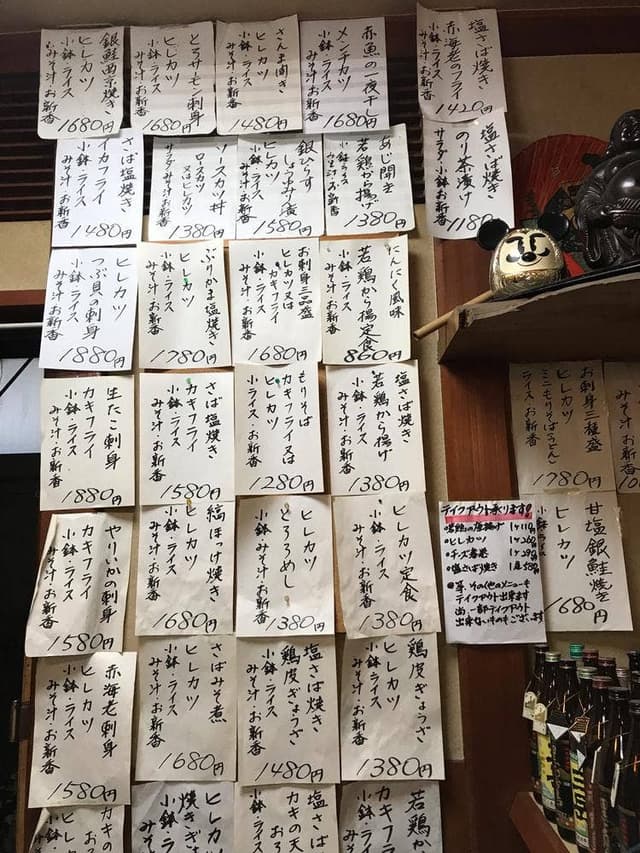 銀鮭西京焼き
ヒレカツ
小鉢・ライス
みそ汁・お新香
1680円
とろサーモン刺身
ヒレカツ
小鉢・ライス
みそ汁・お新香
1680円
さんま開き
ヒレカツ
小鉢・ライス
みそ汁・お新香
1480円
赤魚の一夜干し
メンチカツ
小鉢・ライス
みそ汁・お新香
1680円
塩さば焼き
赤海老のフライ
小鉢・ライス
みそ汁・お新香
1420円
さば塩焼き
イカフライ
小鉢・ライス
みそ汁・お新香
1480円
ソースカツ丼
ロースカツ
又はヒレカツ
サラダ・みそ汁・お新香
1380円
銀ひらす
しょうゆ漬
ヒレカツ
小鉢・ライス
みそ汁・お新香
1580円
あじ開き
若鶏から揚げ
小鉢・ライス
みそ汁・お新香
1380円
塩さば焼き
のり茶漬け
サラダ・小鉢・お新香
1180円
ヒレカツ
つぶ貝の刺身
小鉢・ライス
みそ汁・お新香
1880円
ぶりかま塩焼き
ヒレカツ
小鉢・ライス
みそ汁・お新香
1780円
お刺身三品盛
ヒレカツ又は
カキフライ
小鉢・ライス
みそ汁・お新香
1680円
にんにく風味
若鶏から揚定食
小鉢・ライス
みそ汁・お新香
860円
生たこ刺身
カキフライ
小鉢・ライス
みそ汁・お新香
1880円
さば塩焼き
カキフライ
小鉢・ライス
みそ汁・お新香
1580円
もりそば
カキフライ又は
ヒレカツ
小ライス・お新香
1280円
塩さば焼き
若鶏から揚げ
小鉢・ライス
みそ汁・お新香
1380円
お刺身三種盛
ヒレカツ
ミニもりそば(うどん)
ライス・お新香
1780円
やりいかの刺身
カキフライ
小鉢・ライス
みそ汁・お新香
1580円
縞ほっけ焼き
ヒレカツ
小鉢・ライス
みそ汁・お新香
1680円
ヒレカツ
とろろめし
小鉢
みそ汁・お新香
1380円
ヒレカツ定食
小鉢・ライス
みそ汁・お新香
1380円
テイクアウト承ります!
•ヒレカツ
•チーズ春巻
•塩さば焼き
•等、その他のメニューも
テイクアウト出来ます
尚、一部テイクアウト
出来ないものもございます
甘塩銀鮭焼き
ヒレカツ
小鉢・ライス
みそ汁・お新香
1680円
赤海老刺身
ヒレカツ
小鉢・ライス
みそ汁・お新香
1580円
さばみそ煮
ヒレカツ
小鉢・ライス
みそ汁・お新香
1680円
塩さば焼き
鶏皮ぎょうざ
小鉢・ライス
みそ汁・お新香
1480円
鶏皮ぎょうざ
ヒレカツ
小鉢・ライス
みそ汁・お新香
1380円
ヒレカツ
カキ
小鉢
みそ汁
ヒレカ
焼きぎ
小鉢・
みそ汁
塩さば
カキの天
小鉢・ライス
みそ汁・お
若鶏か
カキフラ
小鉢・ライ
みそ汁・お